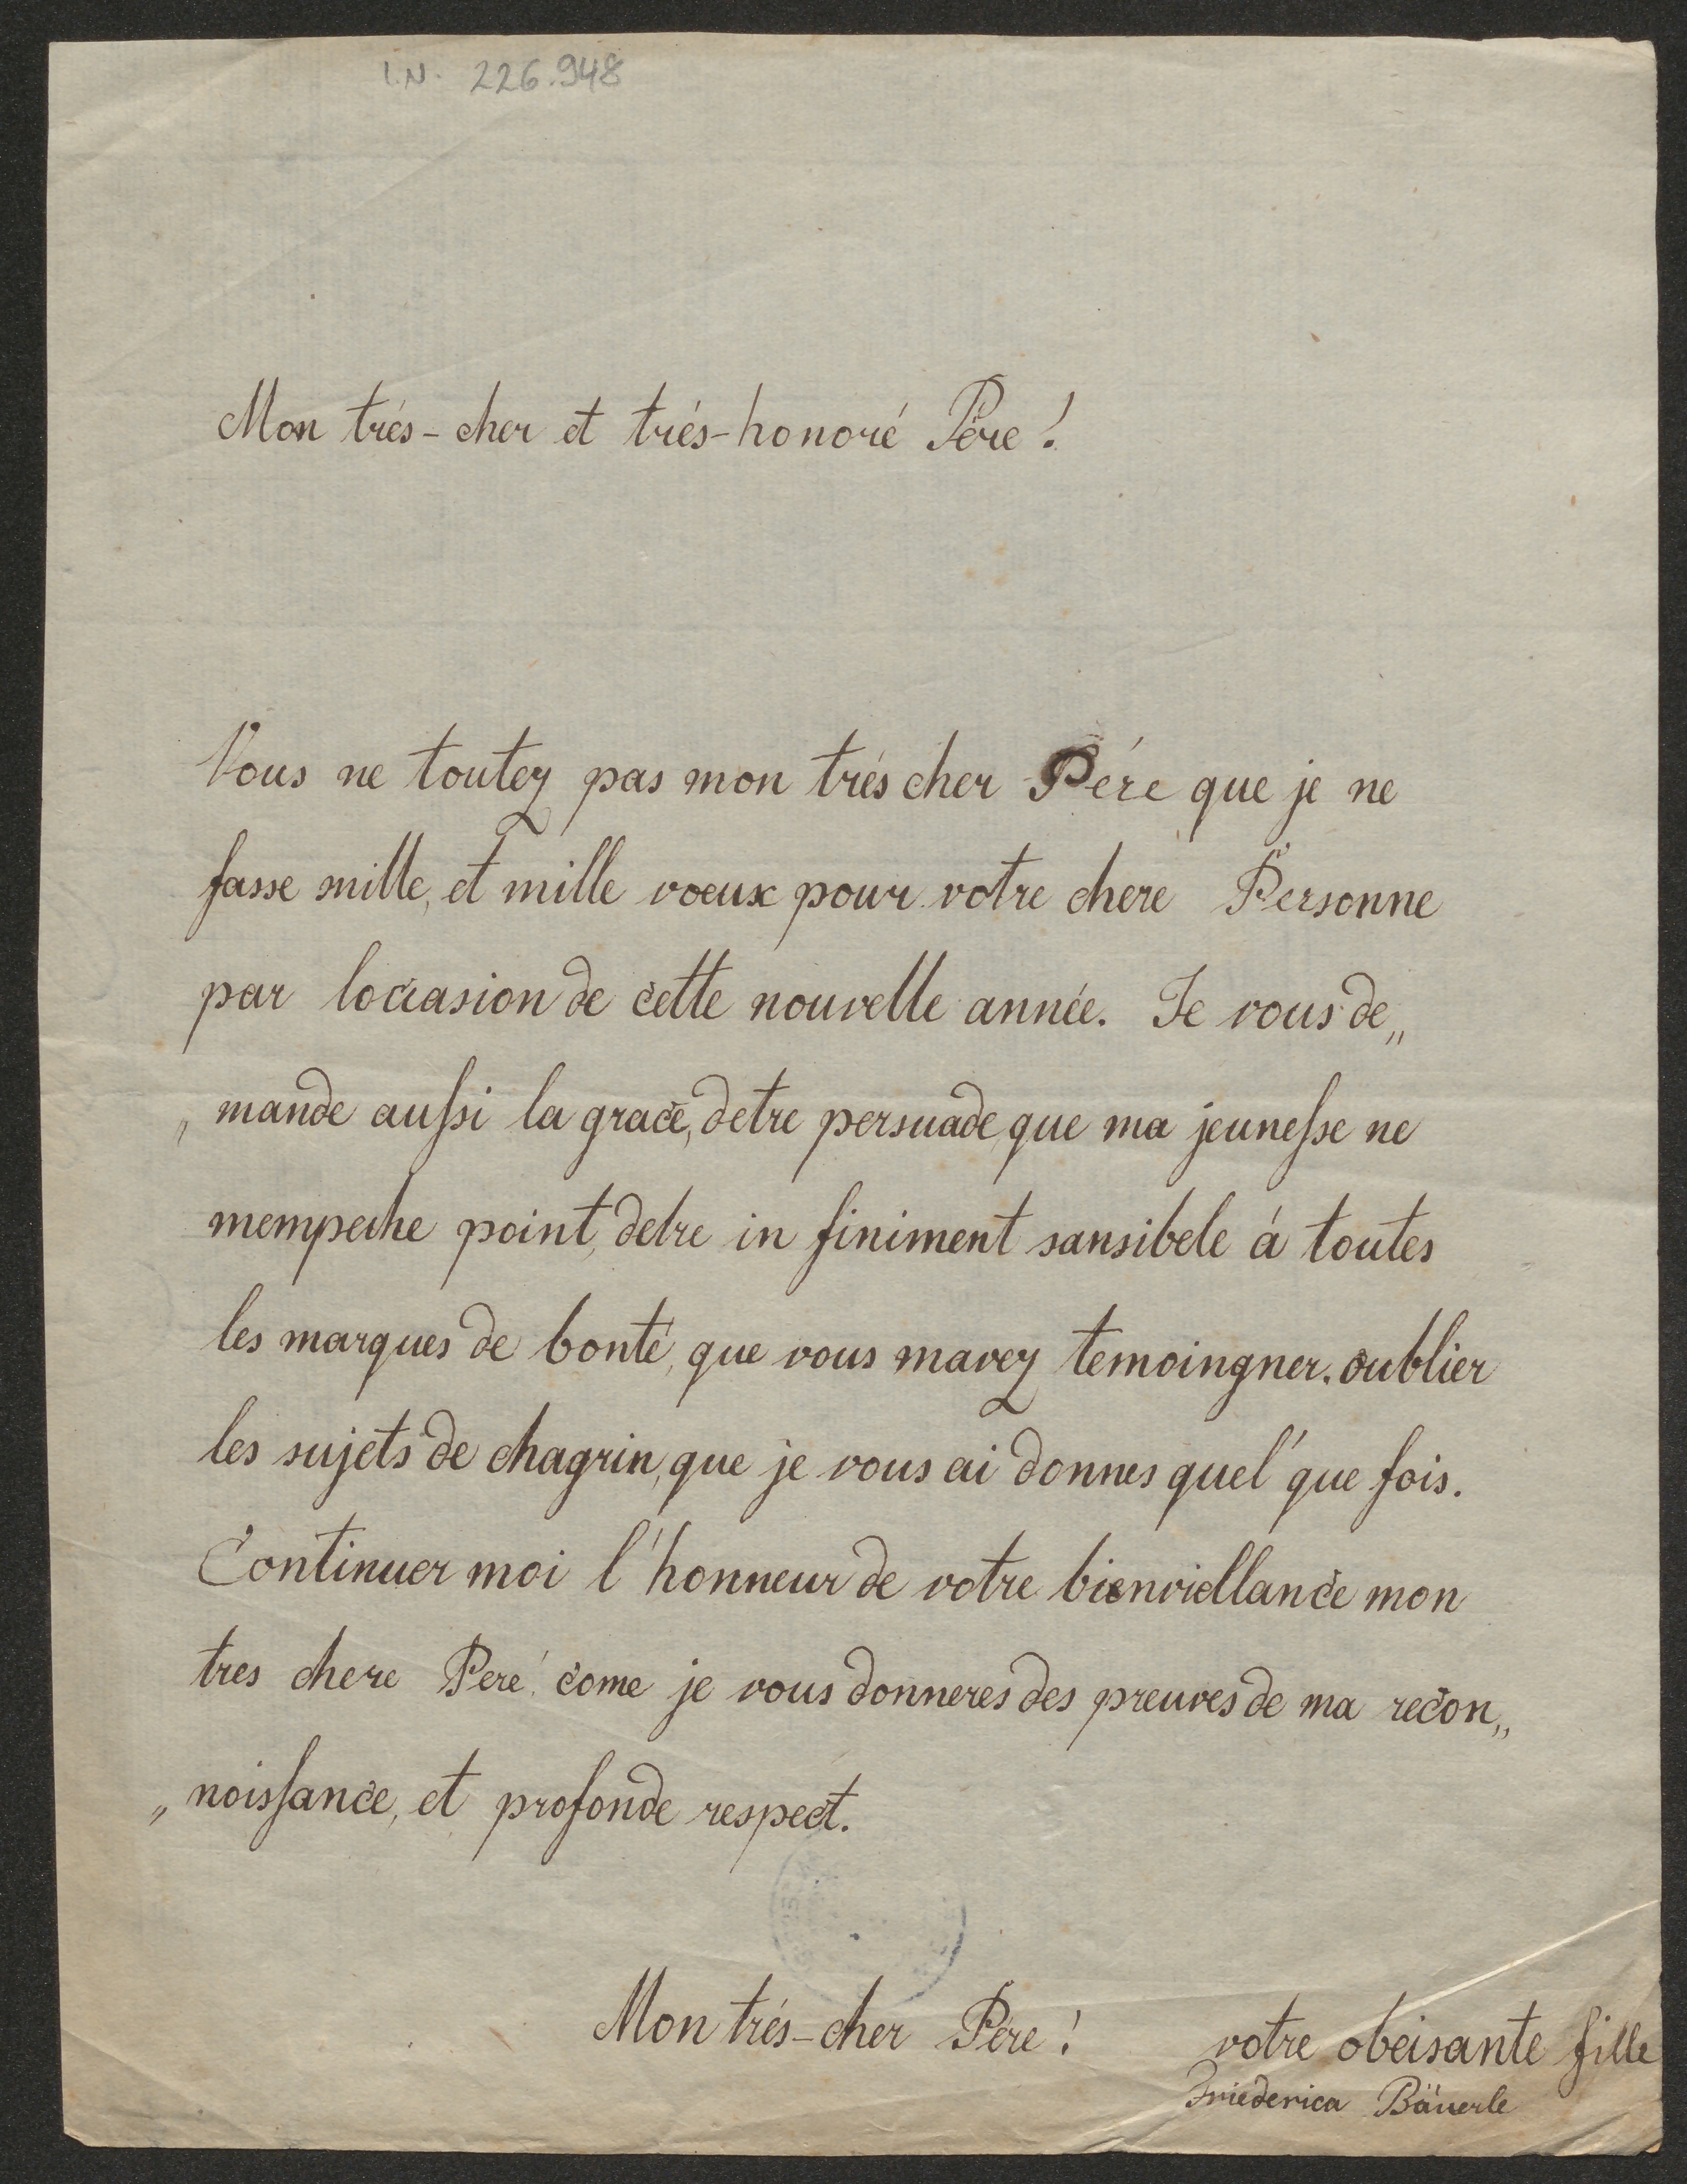 I.N. 226.948
Mon trés-cher et trés-honoré Pére!
Vous ne toutez pas mon trés cher Pére que je ne
fasse mille, et mille voeux pour votre chere Personne
par loccasion de cette nouvelle année. Je vous de„
„mande aussi la grace, detre persuade, que ma jeunesse ne
mempeche point, detre in finiment sansibele á toutes
les marques de bonté, que vous mavez temoingner. oublier
les sujets de chagrin, que je vous ai donnes quel'que fois.
Continuer moi l'honneur de votre bienviellance mon
tres chere Peré come je vous donneres des preuves de ma recon„
„noissance, et profonde respect.
Mon trés-cher Pére! votre obeisante fille
Friederica Bäuerle